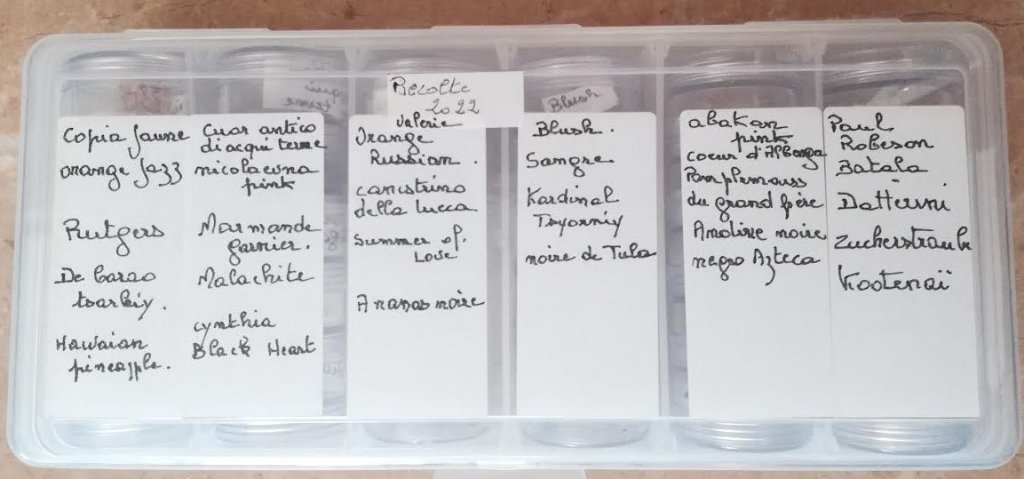 Récolte
2022
Valérie
Blush
Copia Jaune
orange Jazz
Rutgers
De barao
tsarkiy.
Hawaian
pineapple.
Cuor antico
di acqui terme
nicolaevna
pink
Marmande
garnier.
Malachite
cynthia
Black Heart
Orange
Russian.
canestrino
della lucca
Summer of.
Love
Ananas noire
Blush.
Sangre
Kardinal
noire de Tula
abakan
pink
coeur d'Albenga
Pamplemouss
du grand père
negro Azteca
Paul
Robeson
Batala
Datterini
Zuckerstraube
Kootenaï